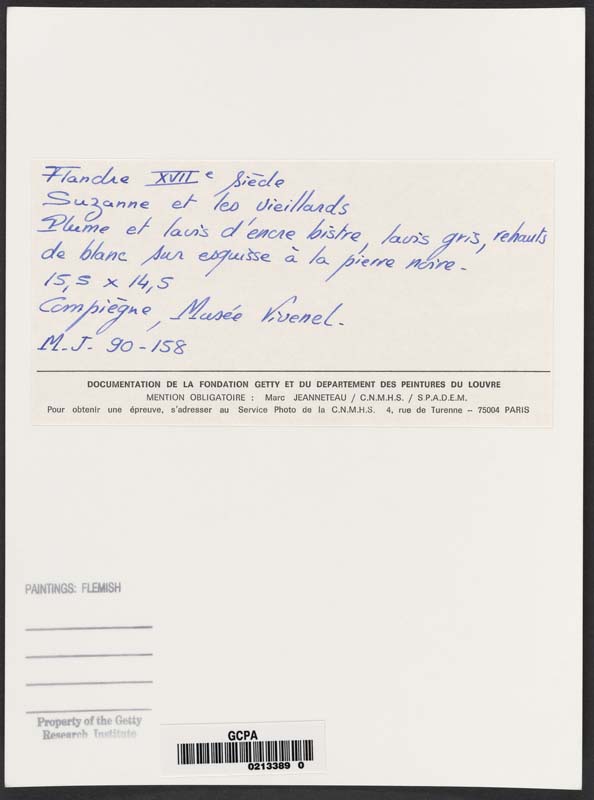 Flandre XVIIe siècle
Suzanne et les vieillards
Plume et lavis d'encre bistre, lavis gris, rehauts
de blanc sur esquisse à la pierre noire.
15,5 x 14,5
Compiègne, Musée Vivenel.
M.J. 90-158
DOCUMENTATION DE LA FONDATION GETTY ET DU DEPARTEMENT DES PEINTURES DU LOUVRE
MENTION OBLIGATOIRE : Marc JEANNETEAU / C.N.M.H.S. / S.P.A.D.E.M.
Pour obtenir une épreuve, s'adresser au Service Photo de la C.N.M.H.S. 4, rue de Turenne – 75004 PARIS
PAINTINGS: FLEMISH
Property of the Getty
Research Institute
GCPA
0213389 0